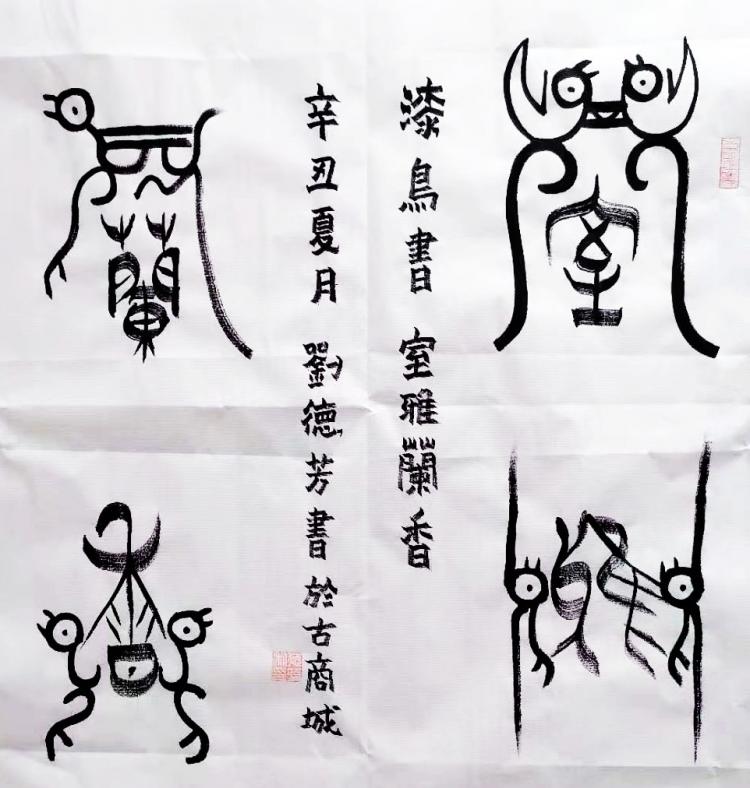 室雅
漆鳥書 室雅蘭香
辛丑夏月 劉德芳書於古商城
蘭香